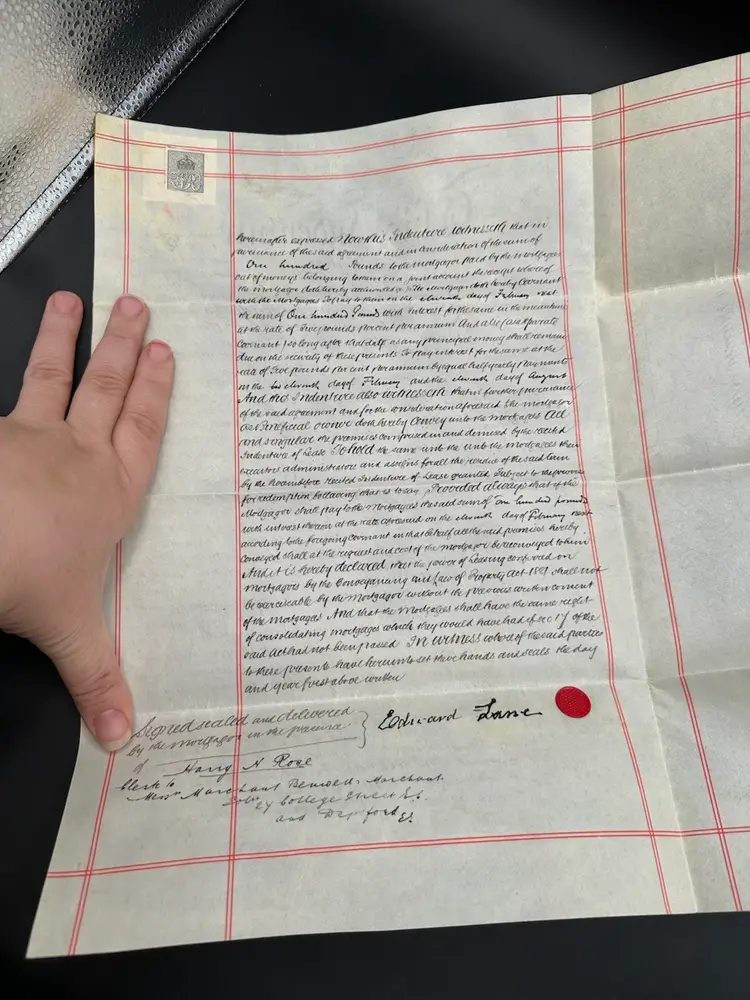 hereinafter expressed Now this Indenture witnesseth that in
pursuance of the said agreement and in consideration of the sum of
One hundred Pounds to the mortgagor paid by the mortgagees
out of moneys belonging to them on a joint account the receipt whereof
the mortgagor doth hereby acknowledge The Mortgagor doth hereby Covenant
with the Mortgagees To pay to them on the eleventh day of February next
the sum of One hundred Pounds with Interest for the same in the meantime
at the rate of Five pounds per cent per annum And also (as a separate
Covenant) so long after that date as any principal money shall remain
due on the security of these presents To pay interest for the same at the
rate of Five pounds per cent per annum by equal half yearly payments
on the eleventh day of February and the eleventh day of August
And this Indenture also witnesseth that in further pursuance
of the said agreement and for the consideration aforesaid the mortgagor
as Beneficial owner doth hereby Convey unto the mortgagees All
and singular the premises comprised in and demised by the recited
Indenture of Lease To hold the same unto the mortgagees their
executors administrators and assigns for all the residue of the said term
by the hereinbefore recited Indenture of Lease granted Subject to the proviso
for redemption following that is to say Provided always that if the
Mortgagor shall pay to the Mortgagees the said sum of One hundred pounds
with interest thereon at the rate aforesaid on the eleventh day of February next
according to the foregoing covenant in that behalf all the said premises hereby
conveyed shall at the request and cost of the mortgagor be reconveyed to him
And it is hereby declared that the power of leasing conferred on
mortgagors by the Conveyancing and Law of Property Act 1881 shall not
be exerciseable by the Mortgagor without the previous written consent
of the mortgagees And that the Mortgagees shall have the same right
of consolidating mortgages which they would have had if sec 17 of the
said Act had not been passed In witness whereof the said parties
to these presents have hereunto set their hands and seals the day
and year first above written
Signed sealed and delivered
by the mortgagor in the presence
of Harry H Rose
Edward Lane
Clerk to
Messrs Marchant Benwell & Marchant
Solrs 27 College Street
and Deptford